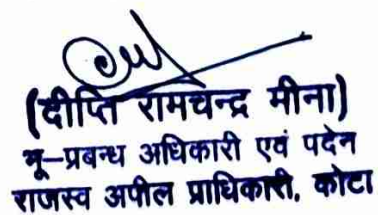 (दीप्ति रामचन्द्र मीना)
भू–प्रबन्ध अधिकारी एवं पदेन
राजस्व अपील प्राधिकारी, कोटा